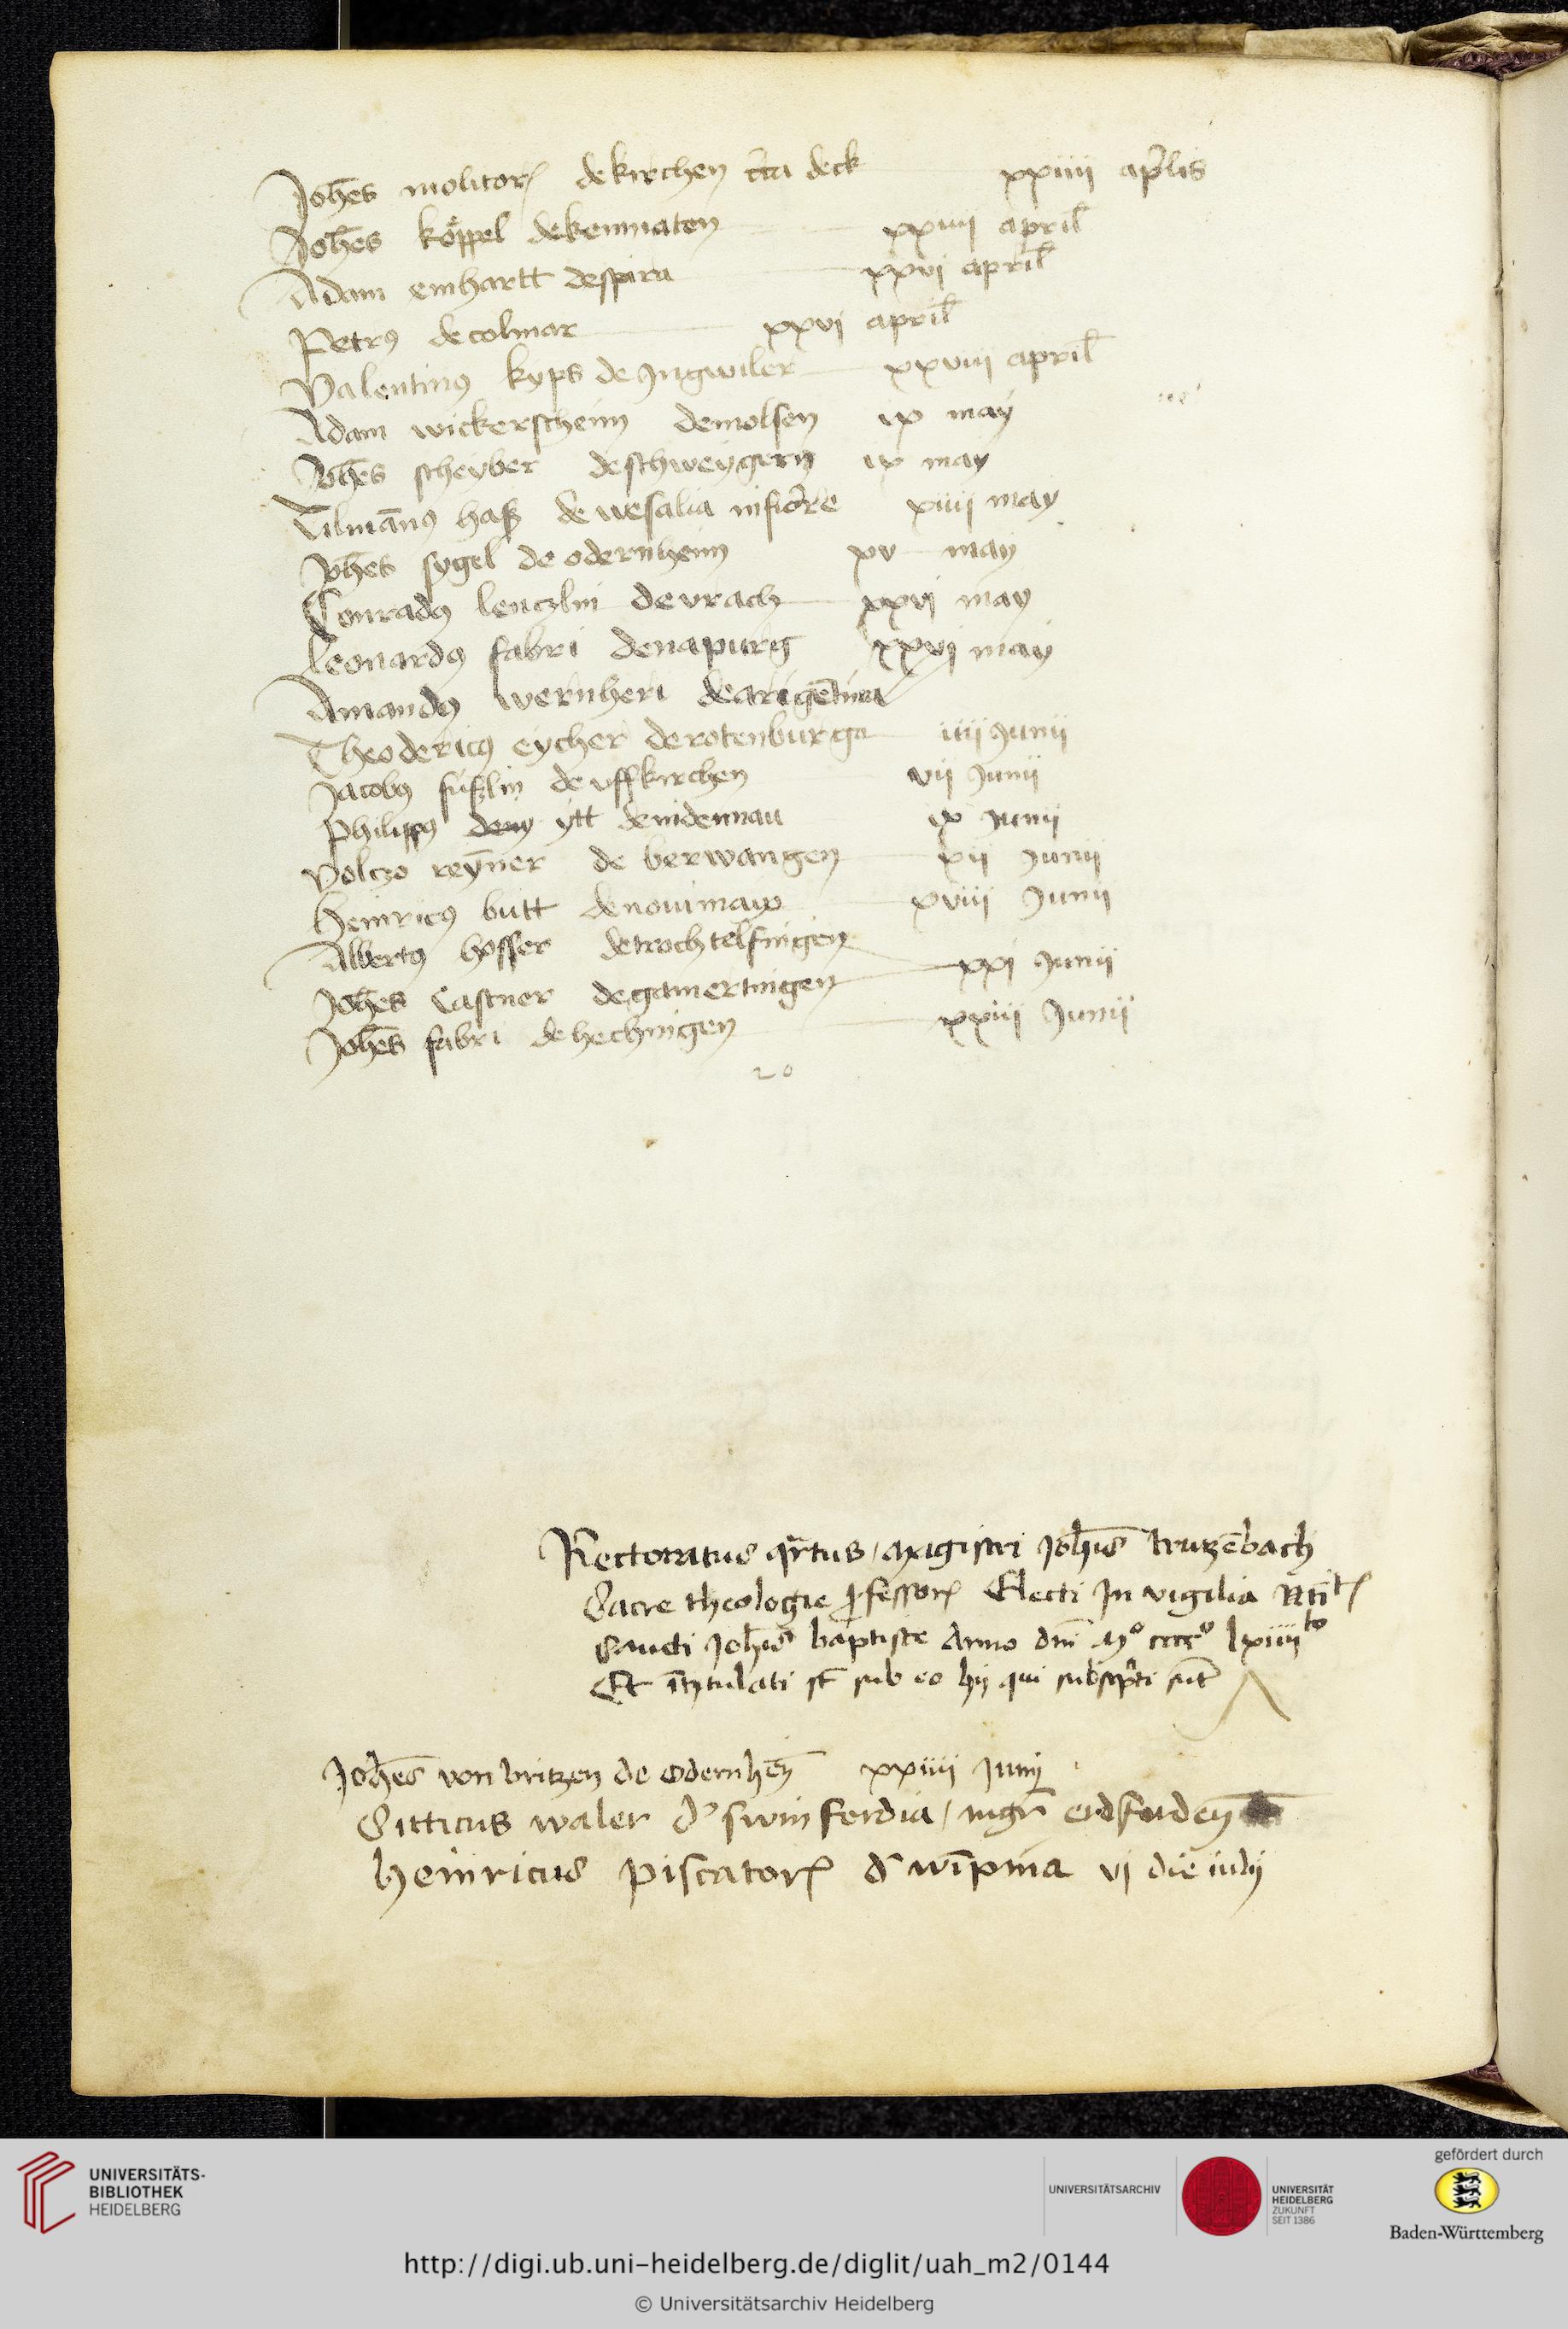 Joh̄es molitor̄ de kirchen c̄ca deck xxiiii ap̄lis
Joh̄es köppel de kemnaten xxiiii april̄
Adam emhartt de spira xxvi april̄
Petrꝯ de colmar xxvi april̄
Valentinꝯ kyps de Ingwiler xxviii april̄
Adam wickerscheim de molsen ix may
Joh̄es scheyber de schweygern ix may
Tilman̄ꝯ haß de uesalia inferiore xiiii may
Joh̄es sygel de odernheim xv may
Conradꝯ lenczlin de vrach xxvj may
Leonardꝯ fabri de napurg xxvj may
Amandꝯ wernheri de argētina
Theodericꝯ eycher de rotenburga iiij Junii
Jacobꝯ füßlin de uffkirchen vii Junii
Philippꝯ deny ytt de nidennau ix Junii
Volczo reyn̄er de berwangen xii Junij
Heinricꝯ butt de nouimaỿ xviii Junii
Albertꝯ hosser de trochtelfingen
Joh̄es Castner de gamertingen xxj Junii
Joh̄es fabri de hechingen xxiii Junii
20
Rectoratus qr̄tus / magistri Joh̄is trutzēbach
Sacre theologie ꝓfessor̄ Electi In vigilia
Sancti Joh̄is baptiste Anno dn̄i Mº ccccº lxiiiito
Et ītytulati st̄ sub eo hij qui subscp̄ti sūt
Joh̄es von britzen de Odernhēȳ xxiiii Junij
Sitticus waler d' swinfordia / mgr̄ erdfuden̄
heinricus piscator̄ d' wīpina vj die iulij
UNIVERSITÄTS-
BIBLIOTHEK
HEIDELBERG
UNIVERSITÄTSARCHIV
UNIVERSITÄT
HEIDELBERG
ZUKUNFT
SEIT 1386
gefördert durch
Baden-Württemberg
http://digi.ub.uni-heidelberg.de/diglit/uah_m2/0144
© Universitätsarchiv Heidelberg